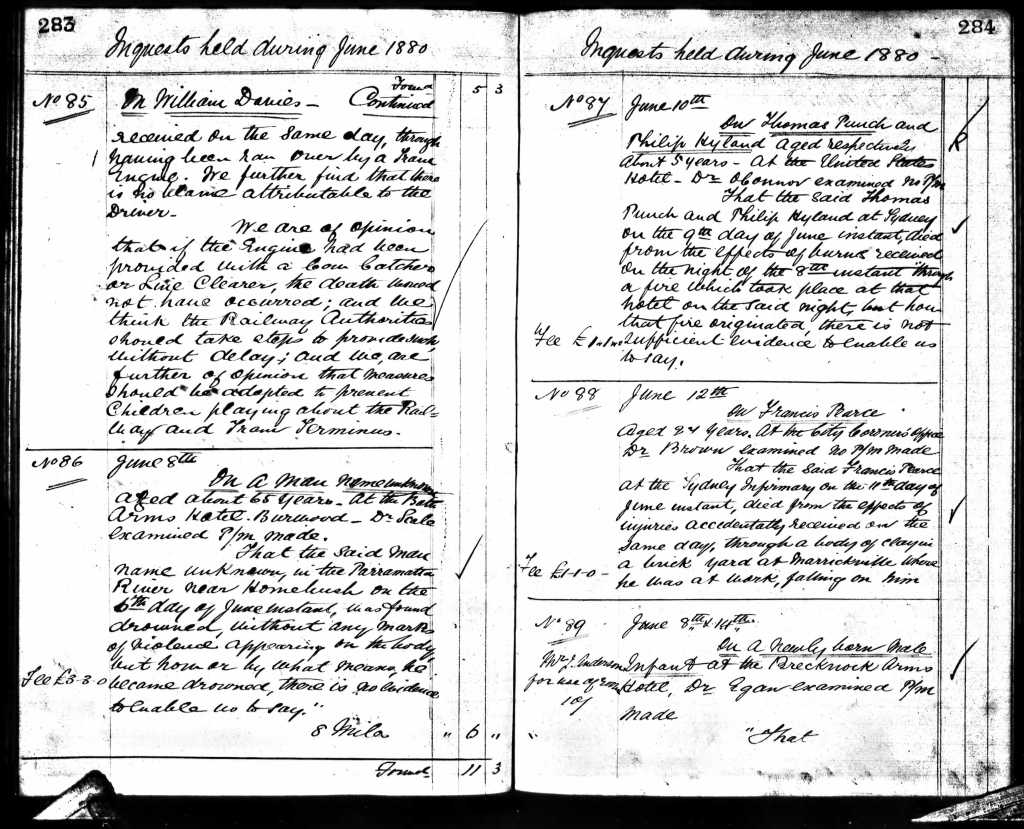 283
Inquests held during June 1880
Forwd 5 3
No 85 On William Davies - Continued
received on the same day, through
having been ran over by a Tram
Engine. We further find that there
is no blame attributable to the
Driver -
We are of opinion
that if the Engine had been
provided with a Cow Catcher
or Line Clearer, the death would
not have occurred; and we
think the Railway Authorities
should take steps to provide such
without delay; and we, are
further of opinion that measures
should be adopted to prevent
Children playing about the Rail-
way and Tram Terminus.
No 86 June 8th
On A Man name unknown
aged about 65 Years - At the Bath
Arms Hotel. Burwood - Dr
examined P/m made.
That the said man
name unknown, in the Parramatta
River near Homebush on the
6th day of June instant, was found
drowned, without any marks
of violence appearing on the body
but how or by what means, he
Fee £3-3-0 became drowned, there is no evidence
to enable us to say."
8 Mila " 6 "
Forwd 11 3
284
Inquests held during June 1880 -
No 87 June 10th
On Thomas Punch and
Philip Hyland aged respectively
about 5 years - At the United States
Hotel - Dr OConnor examined no P/m
That the said Thomas
Punch and Philip Hyland at Sydney
on the 9th day of June instant, died
from the effects of burns received
on the night of the 8th instant through
a fire which took place at that
hotel on the said night, but how
that fire originated, there is not
Fee £1-1-0 sufficient evidence to enable us
to say.
No 88 June 12th
On Francis Pearce
Aged 24 Years. At the City Coroner's Office
Dr Brown examined no P/m made
That the said Francis Pearce
at the Sydney Infirmary on the 11th day of
June instant, died from the effects of
injuries accidentally received on the
same day, through a body of clay in
a brick yard at Marrickville where
Fee £1-1-0 - he was at work, falling on him
No 89 June 8th & 14th.
On A newly born Male
Mr J. Anderson Infant at the Brecknock Arms
for use of Room Hotel, Dr Egan examined P/m
10/ made
"That